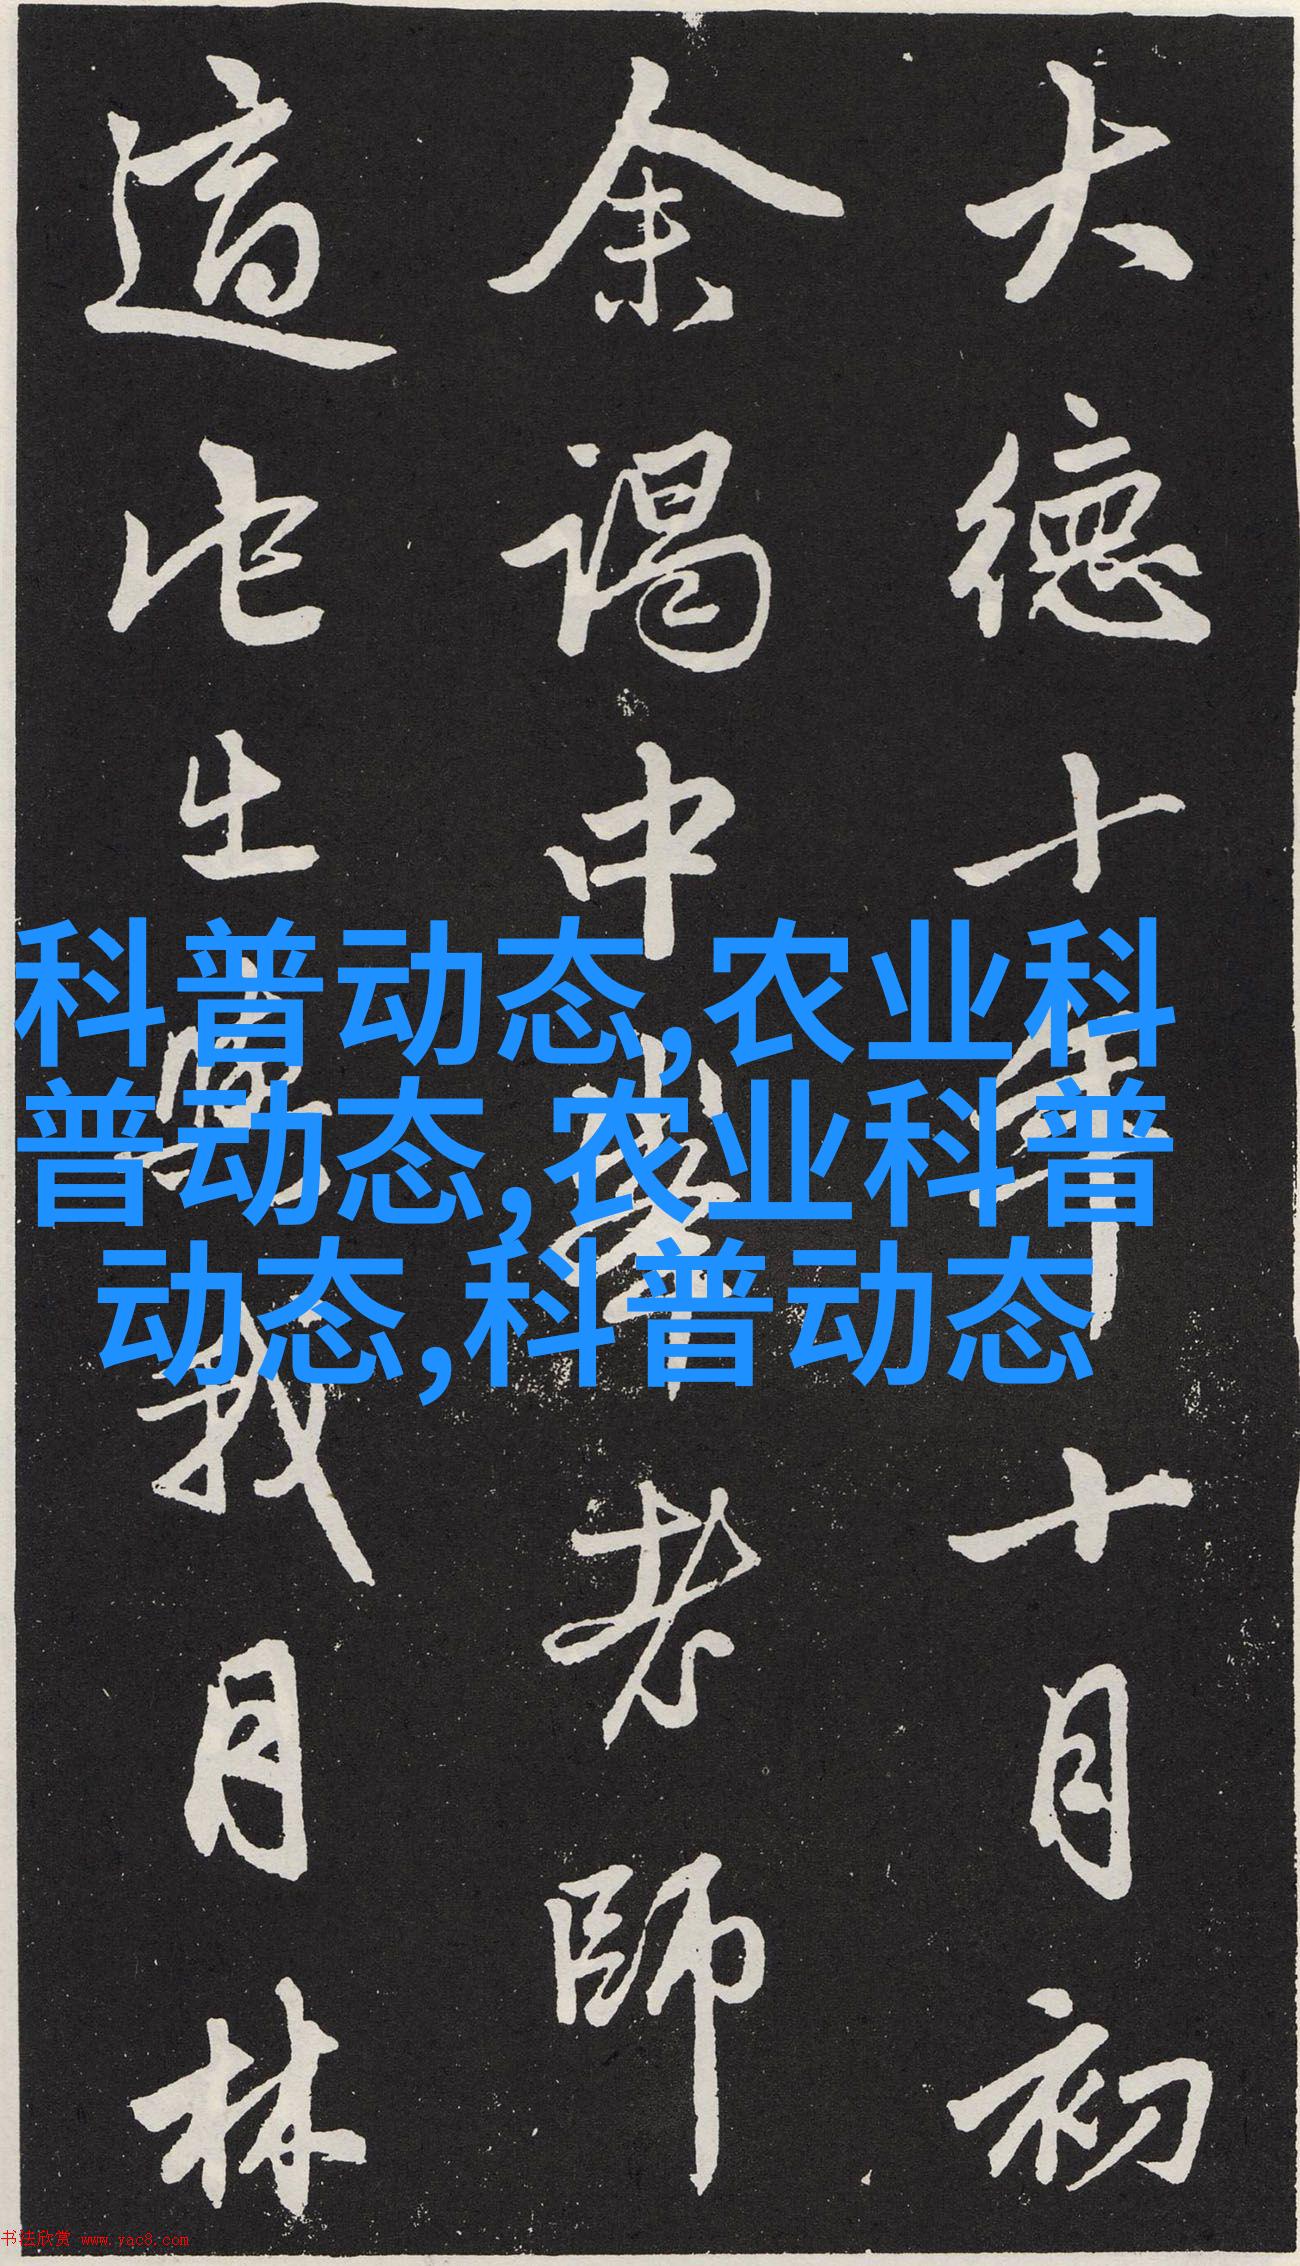 大德十年十月初
余謁中峯老師
適此出與我月林
科普动态,农业科
普动态,农业科普
动态,科普动态
书法欣赏 www.yac8.com